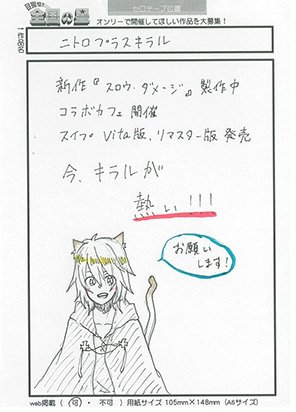 目指せ!
全国の星
セロテープ位置
オンリーで開催してほしい作品を大募集!
作品名
ニトロプラスキラル
新作『スロウ・ダメージ』製作中
コラボカフェ 開催
スイプ Vita版、リマスター版 発売
今、キラルが
熱い!!!
お願い
します!
web掲載( 可 ・ 不可 ) 用紙サイズ 105mm×148mm(A6サイズ)